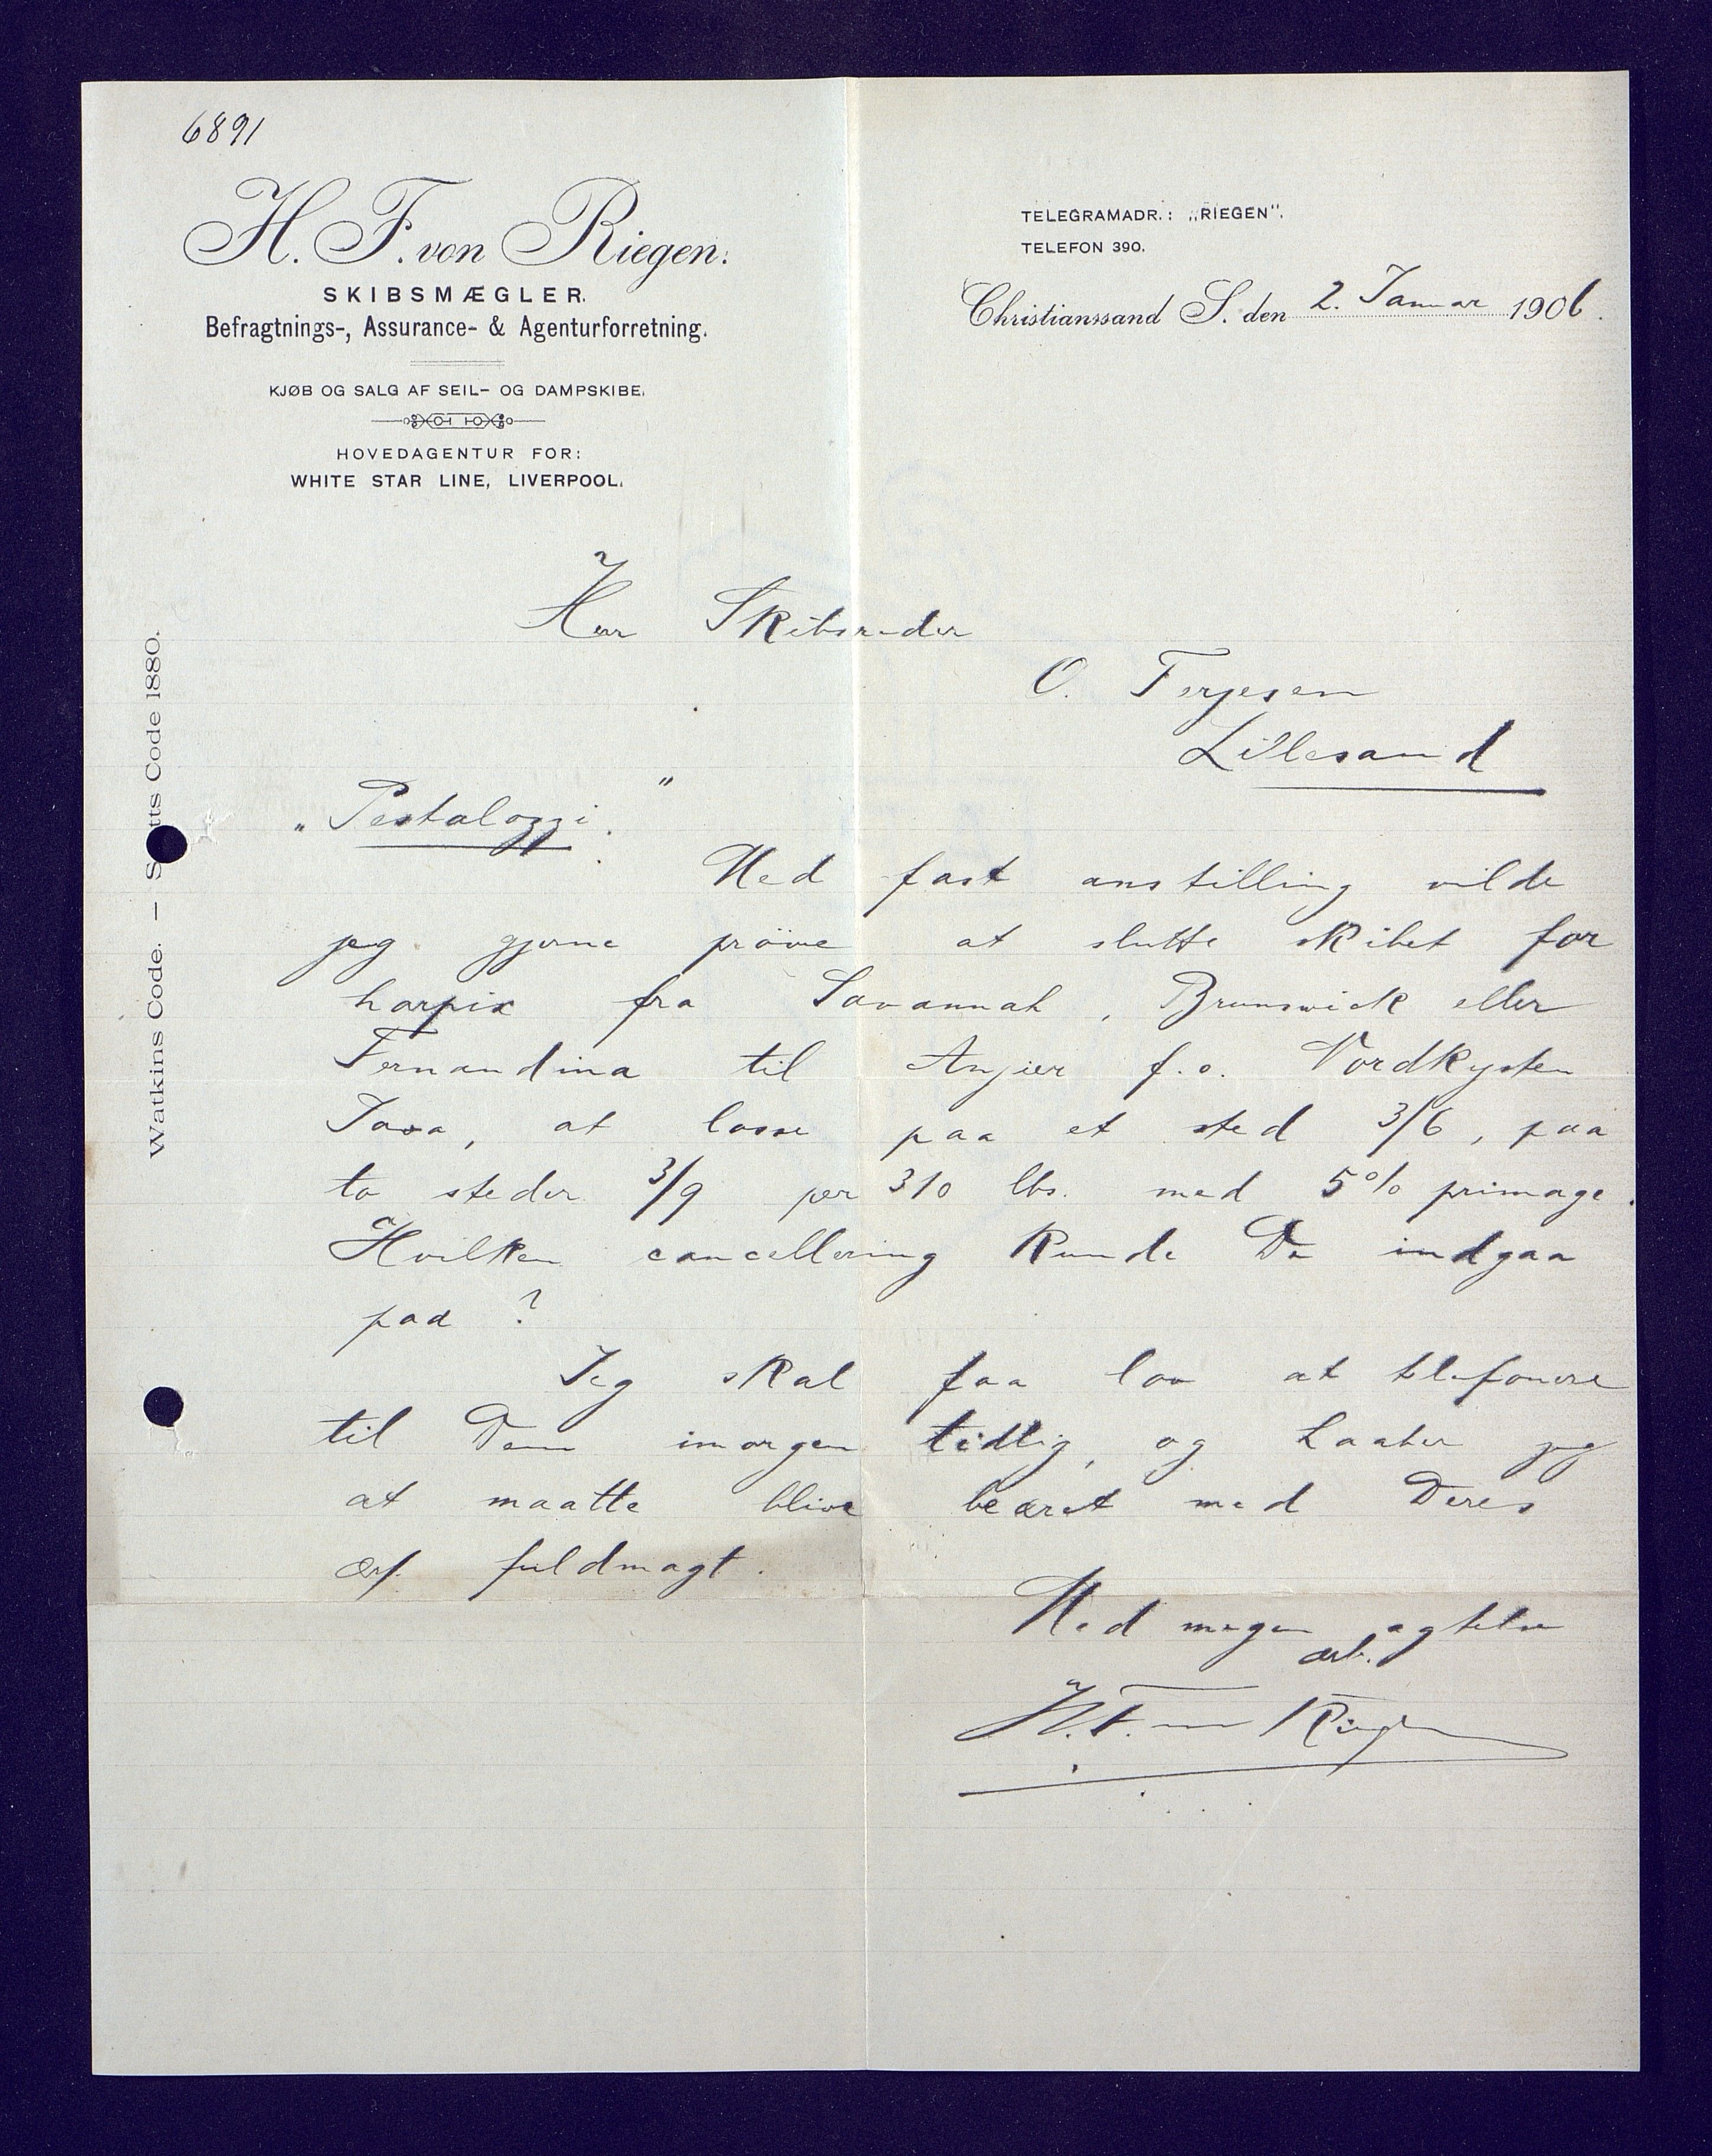 6891
H. F. von Riegen.
SKIBSMÆGLER.
Befragtnings-, Assurance- & Agenturforretning.
KJØB OG SALG AF SEIL- OG DAMPSKIBE.
HOVEDAGENTUR FOR:
WHITE STAR LINE, LIVERPOOL.
TELEGRAMADR.: „RIEGEN".
TELEFON 390.
Christianssand S. den 2. Januar 1906.
Watkins Code. — Scotts Code 1880.
Herr Skibsreder
O. Terjesen
Lillesand
„Pestalozzi."
Med fast anstilling vilde
jeg gjerne pröve at slutte skibet for
harpix fra Savannah, Brunswick eller
Fernandina til Anjier f.o. Nordkysten
Java, at losse paa et sted 3/6, paa
to steder 3/9 per 310 lbs. med 5% primage.
Hvilken cancellering kunde De indgaa
paa?
Jeg skal faa lov at telefonere
til Dem imorgen tidlig, og haaber jeg
at maatte blive beæret med Deres
ærf. fuldmagt.
Med megen agtelse
ærb.
H. F. von Riegen